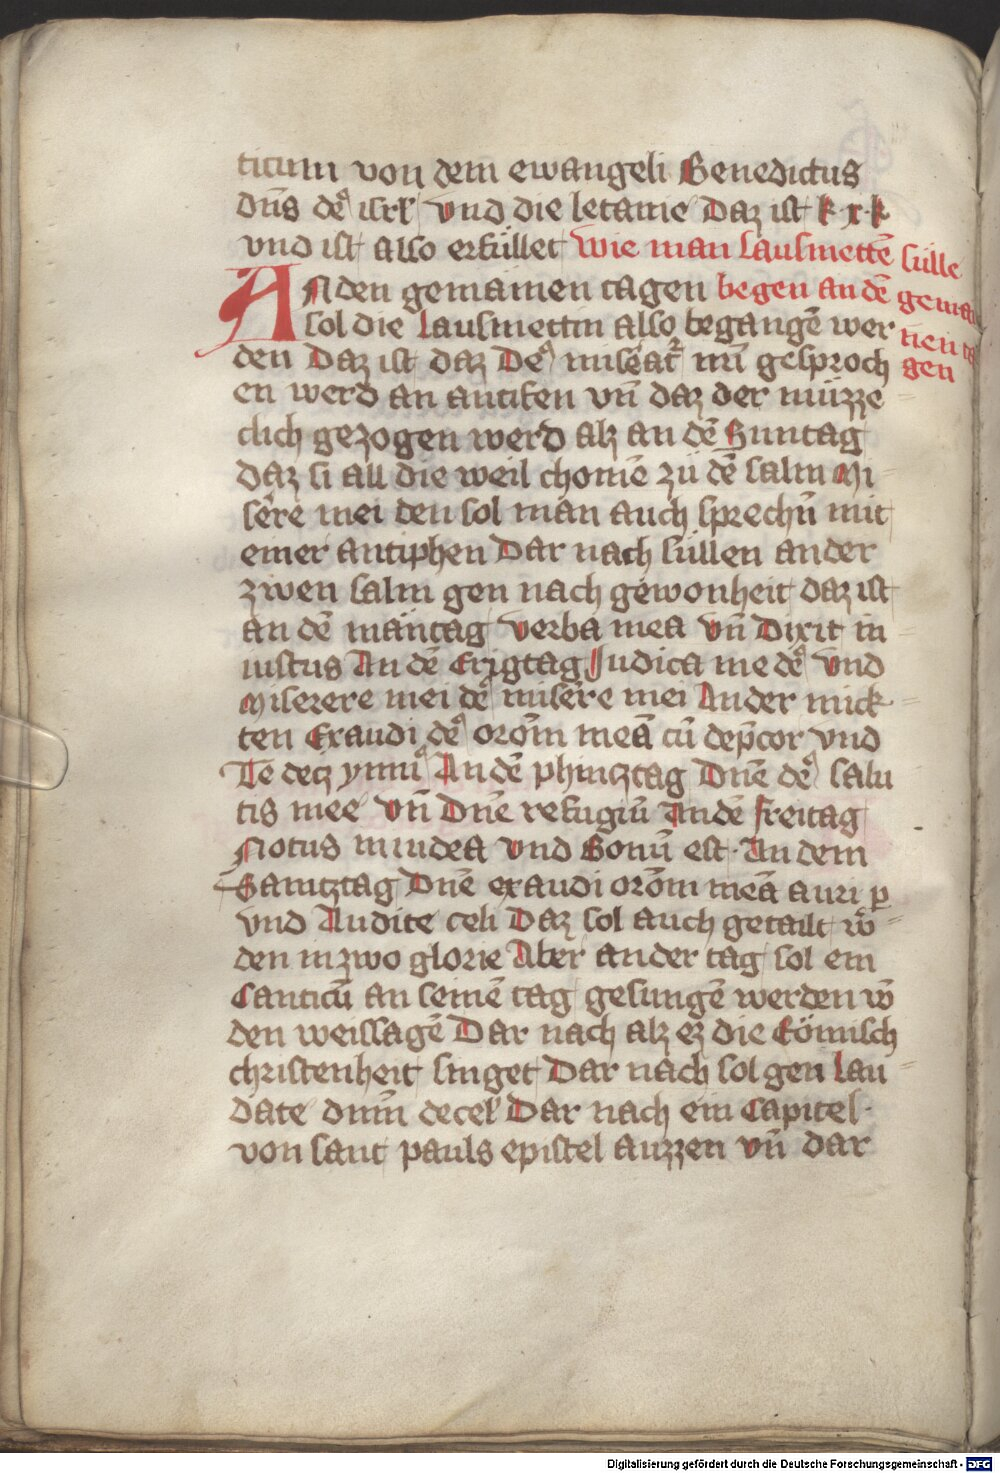 ticum von dem ewangeli Benedictus
dn̄s deꝰ isrl̕ vnd die letanie Daz ist k·x·k
vnd ist also erfüllet wie man Lausmettē sülle
ANden gemainen tagen begen an dē gemai
sol die Lausmettin also begangē wer nen ta
den Daz ist daz Deꝰ miseat᷑ nr̄i gesproch gen
en werd an antifen vn̄ daz der müzze
clich gezogen werd alz an dē Suntag
daz si all die weil chomē zů dē salm Mi
sēre mei den sol man auch sprechn̄ mit
einer antiphen Dar nach süllen ander
zwen salm gen nach gewonheit daz ist
an dē mäntag Verba mea vn̄ Dixit in
iustus An dē Erigtag Iudica me deꝰ vnd
Miserere mei deꝰ misēre mei An der mick
ten Exaudi deꝰ orōm meā cū dep̄cor vnd
Te decz ymnꝰ An dē phincztag Dn̄e deꝰ salu
tis mee vn̄ Dn̄e refugiū An dē freitag
Notus in iudea vnd Bonū est · An dem
Samcztag Dn̄e exaudi orōm meā auri ꝑ
vnd Audite celi Daz sol auch getailt w̄
den in zwo glorie Aber an der tag sol ein
Canticū an seinē tag gesungē werden vō
den weissagē Dar nach alz ez die Römisch
christenheit singet Dar nach sol gen Lau
date dnm̄ de cel̕ Dar nach ein Capitel ·
von sant pauls epistel auzzen vn̄ dar
Digitalisierung gefördert durch die Deutsche Forschungsgemeinschaft - DFG